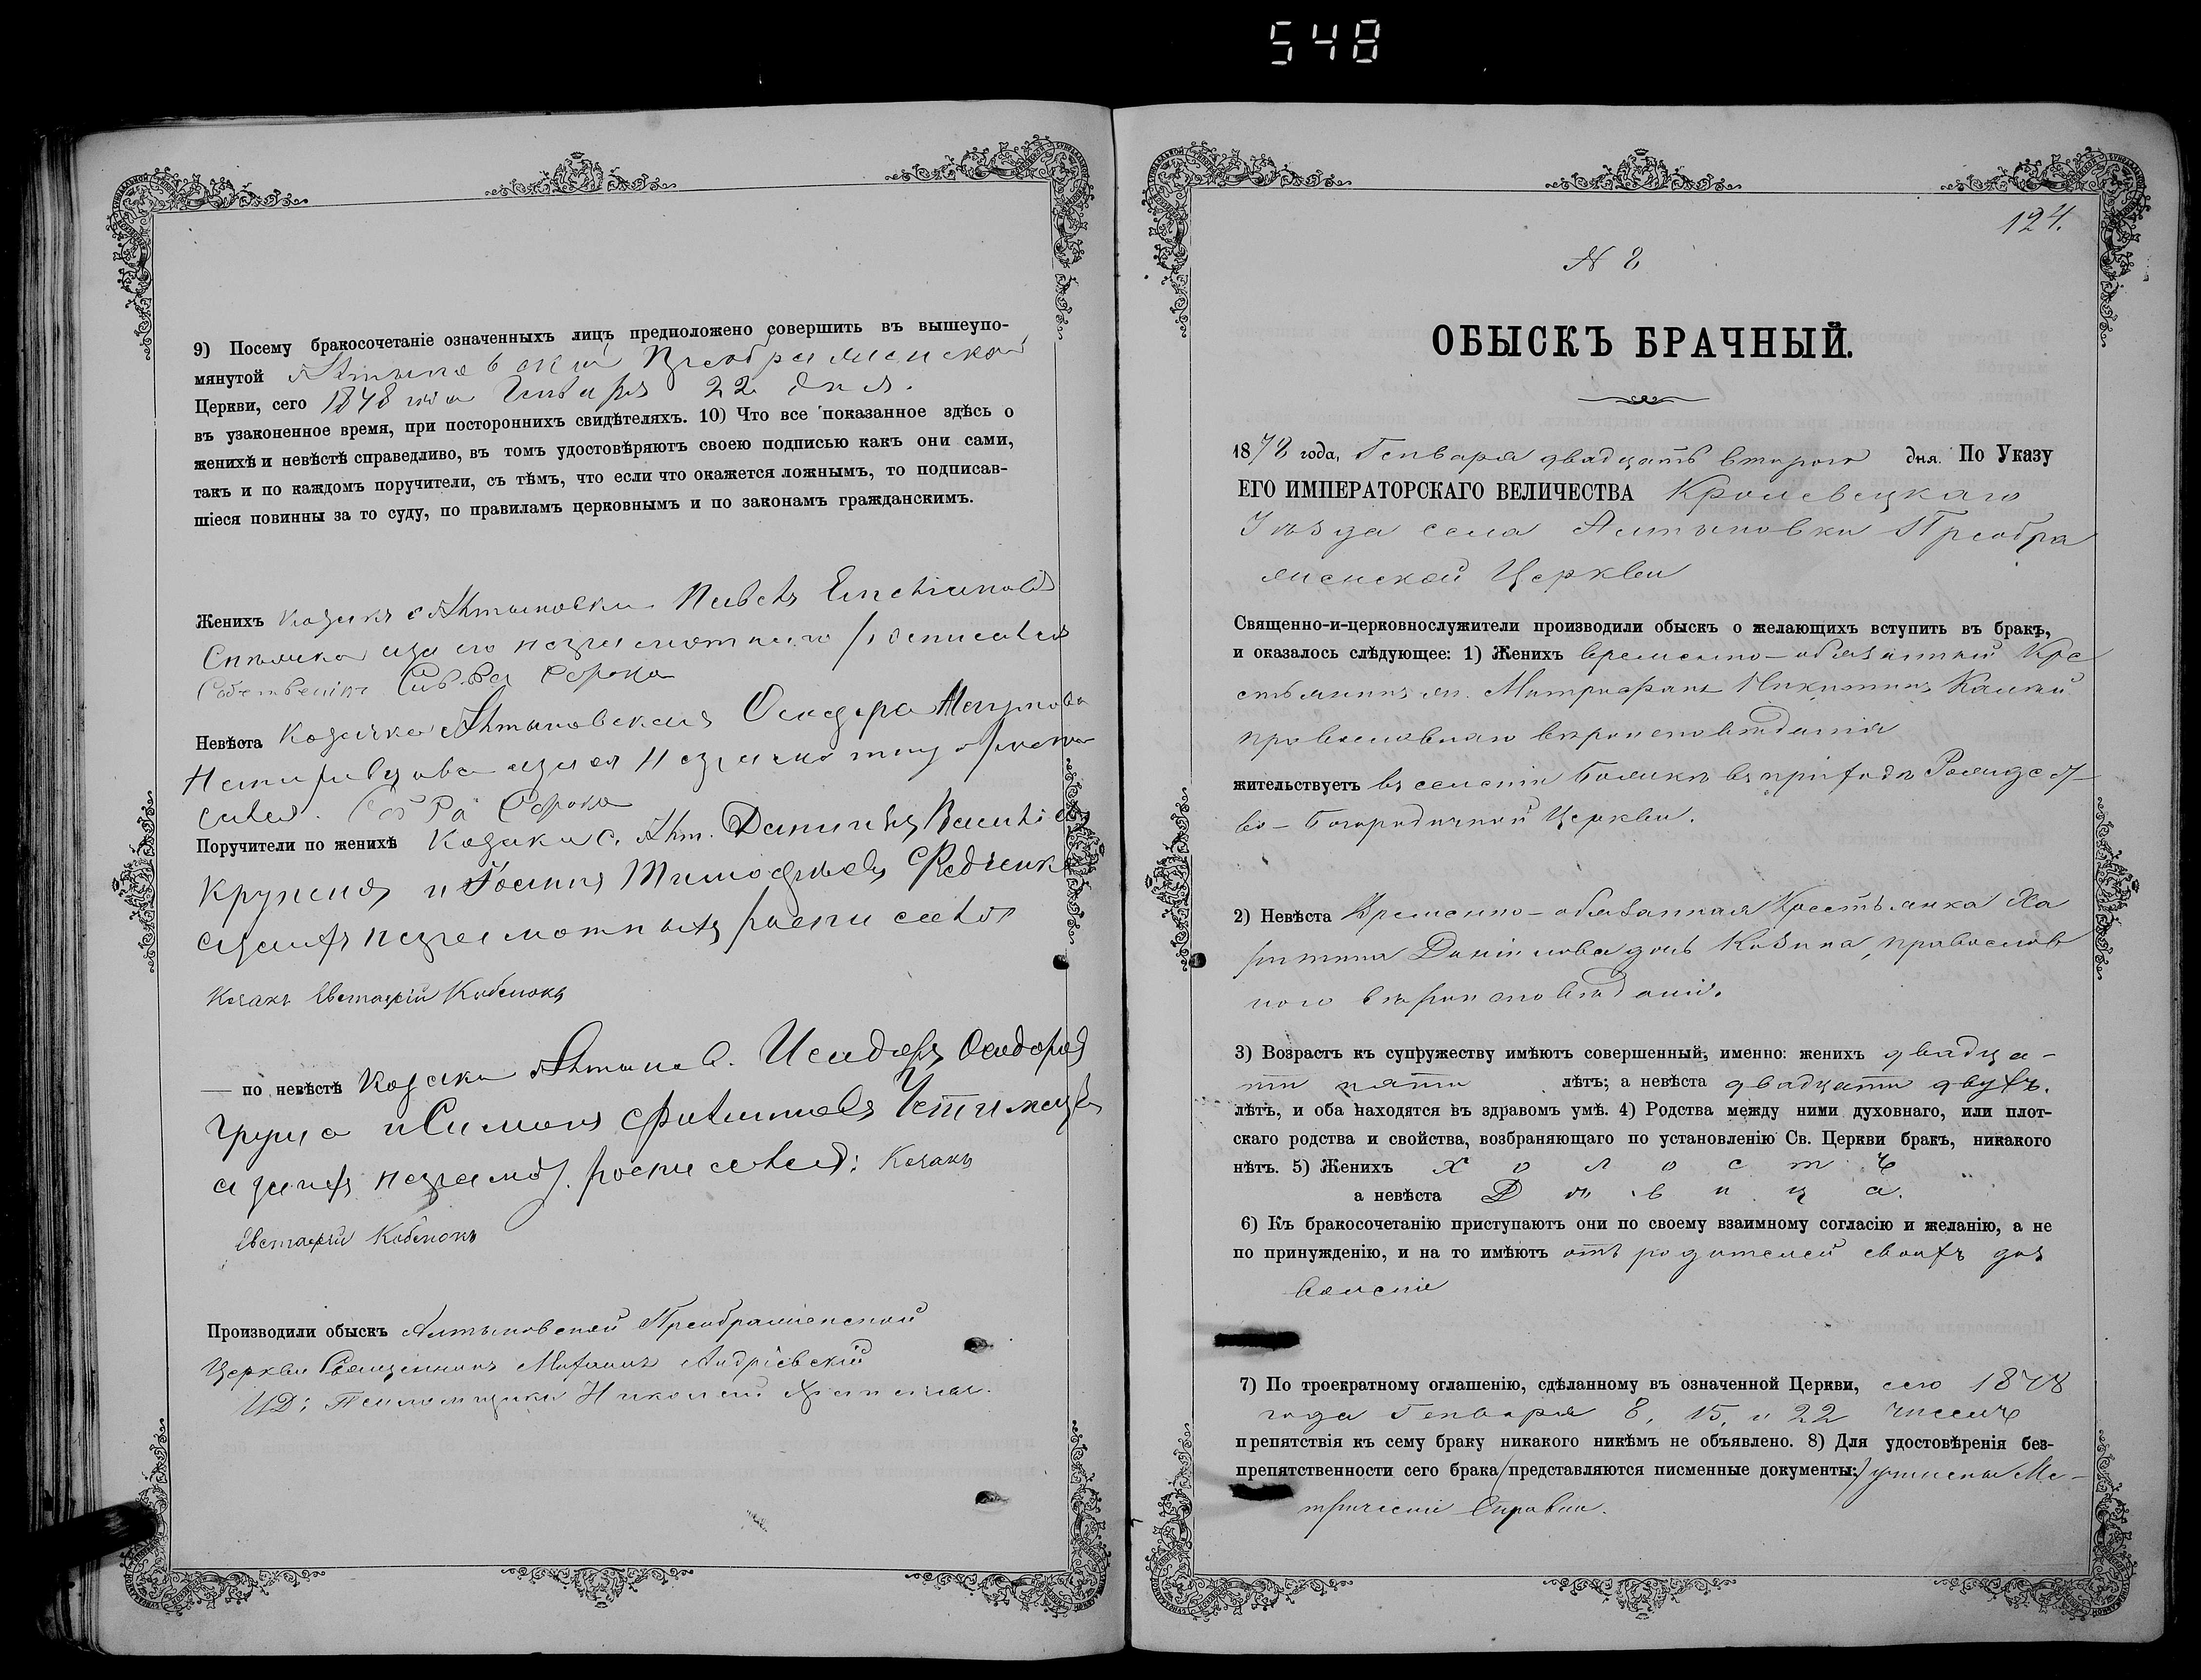 548
9) Посему бракосочетаніе означенныхъ лицъ предположено совершить въ вышеупо-
мянутой Алтыновской Преображенской
Церкви, сего 1878 года Генваря 22 дня.
въ узаконенное время, при постороннихъ свидѣтеляхъ. 10) Что все показанное здѣсь о
женихѣ и невѣстѣ справедливо, въ томъ удостовѣряютъ своею подписью какъ они сами,
такъ и по каждомъ поручители, съ тѣмъ, что если что окажется ложнымъ, то подписав-
шіеся повинны за то суду, по правиламъ церковнымъ и по законамъ гражданскимъ.
Женихъ Козакъ с Алтыновки Павелъ
а за его неграмотнаго росписался
Сорока
Невѣста Козачка Алтыновская
а за ея неграмотную роспи
сался. Сорока
Поручители по женихѣ Козаки с. Алт. Даниилъ Васильев
Крупеня и Тимофѣевъ Федченко
а за ихъ неграмотныхъ росписался
Козакъ Евстафій Кобенокъ
— по невѣстѣ Козаки Алтынов. Исидоръ Феодоров
Груша и Симонъ Филиповъ
а за ихъ неграмот. росписался: Козакъ
Евстафій Кобенокъ
Производили обыскъ Алтыновской Преображенской
Церкви Священникъ Михаилъ Андріевскій
И Д: Псаломщика Николай
124.
N 8
ОБЫСКЪ БРАЧНЫЙ.
1878 года, Генваря двадцать втораго дня. По Указу
ЕГО ИМПЕРАТОРСКАГО ВЕЛИЧЕСТВА Кролевецкаго
Уѣзда села Алтыновки Преобра
женской Церкви
Священно-и-церковнослужители производили обыскъ о желающихъ вступить въ бракъ,
и оказалось слѣдующее: 1) Женихъ временно-обязанный Кре
стьянинъ Митрофанъ Никитинъ
православнаго вѣроисповѣданія
жительствуетъ въ селеніи въ приходѣ Рождест
во-Богородичной Церкви.
2) Невѣста Временно-обязанная Крестьянка Ха
ритина Даніилова дочь Козина, православ
наго вѣроисповѣданія.
3) Возрастъ къ супружеству имѣютъ совершенный, именно: женихъ двадца-
ти пяти лѣтъ; а невѣста двадцати двухъ.
лѣтъ, и оба находятся въ здравомъ умѣ. 4) Родства между ними духовнаго, или плот-
скаго родства и свойства, возбраняющаго по установленію Св. Церкви бракъ, никакого
нѣтъ. 5) Женихъ холостъ
а невѣста Дѣвица.
6) Къ бракосочетанію приступаютъ они по своему взаимному согласію и желанію, а не
по принужденію, и на то имѣютъ отъ родителей своихъ доз
воленіе
7) По троекратному оглашенію, сдѣланному въ означенной Церкви, сего 1878
года Генваря 8, 15, и 22 числъ
препятствія къ сему браку никакого никѣмъ не объявлено. 8) Для удостовѣренія без-
препятственности сего брака представляются писменные документы: учинены Ме-
трическіе Справки.